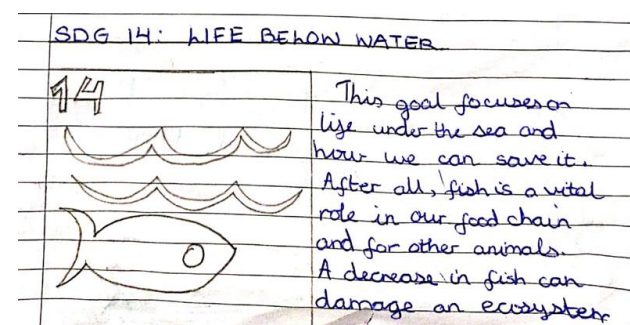 SDG 14: LIFE BELOW WATER
14
This goal focuses on
life under the sea and
how we can save it.
After all, fish is a vital
role in our food chain
and for other animals.
A decrease in fish can
damage an ecosystem